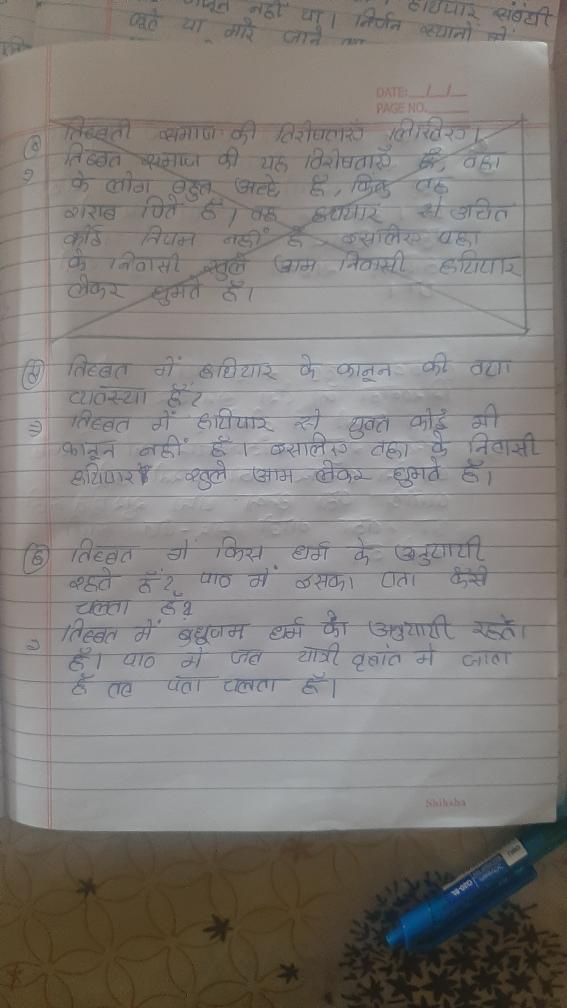 कानून नहीं था। हथियार संबंधी
जाते या मारे जाने का
निर्जन स्थानों में
DATE:
PAGE NO.
तिब्बती समाज की विशेषताएँ लिखिए।
तिब्बत समाज की यह विशेषताएँ हैं, वहा
के लोग बहुत अच्छे हैं, किंतु वह
शराब पिते हैं। वह हथियार से उचित
कोई नियम नहीं है इसालिए वहा
के निवासी खुले आम निवासी हाथियार
लेकर घुमते हैं।
तिब्बत में हाथियार के कानून की क्या
व्यवस्था हैं?
तिब्बत में हाथियार से युक्त कोई भी
कानून नहीं हैं। इसालिए वहा के निवासी
हाथियार खुले आम लेकर घुमते हैं।
⑥ तिब्बत में किस धर्म के अनुयायी
रहते हैं? पाठ में इसका पता कैसे
चलता हैं?
तिब्बत में बुधुजम धर्म के अनुयायी रहते
हैं। पाठ में जब यात्री वृतांत में जाता
हैं तब पता चलता हैं।
Shiksha